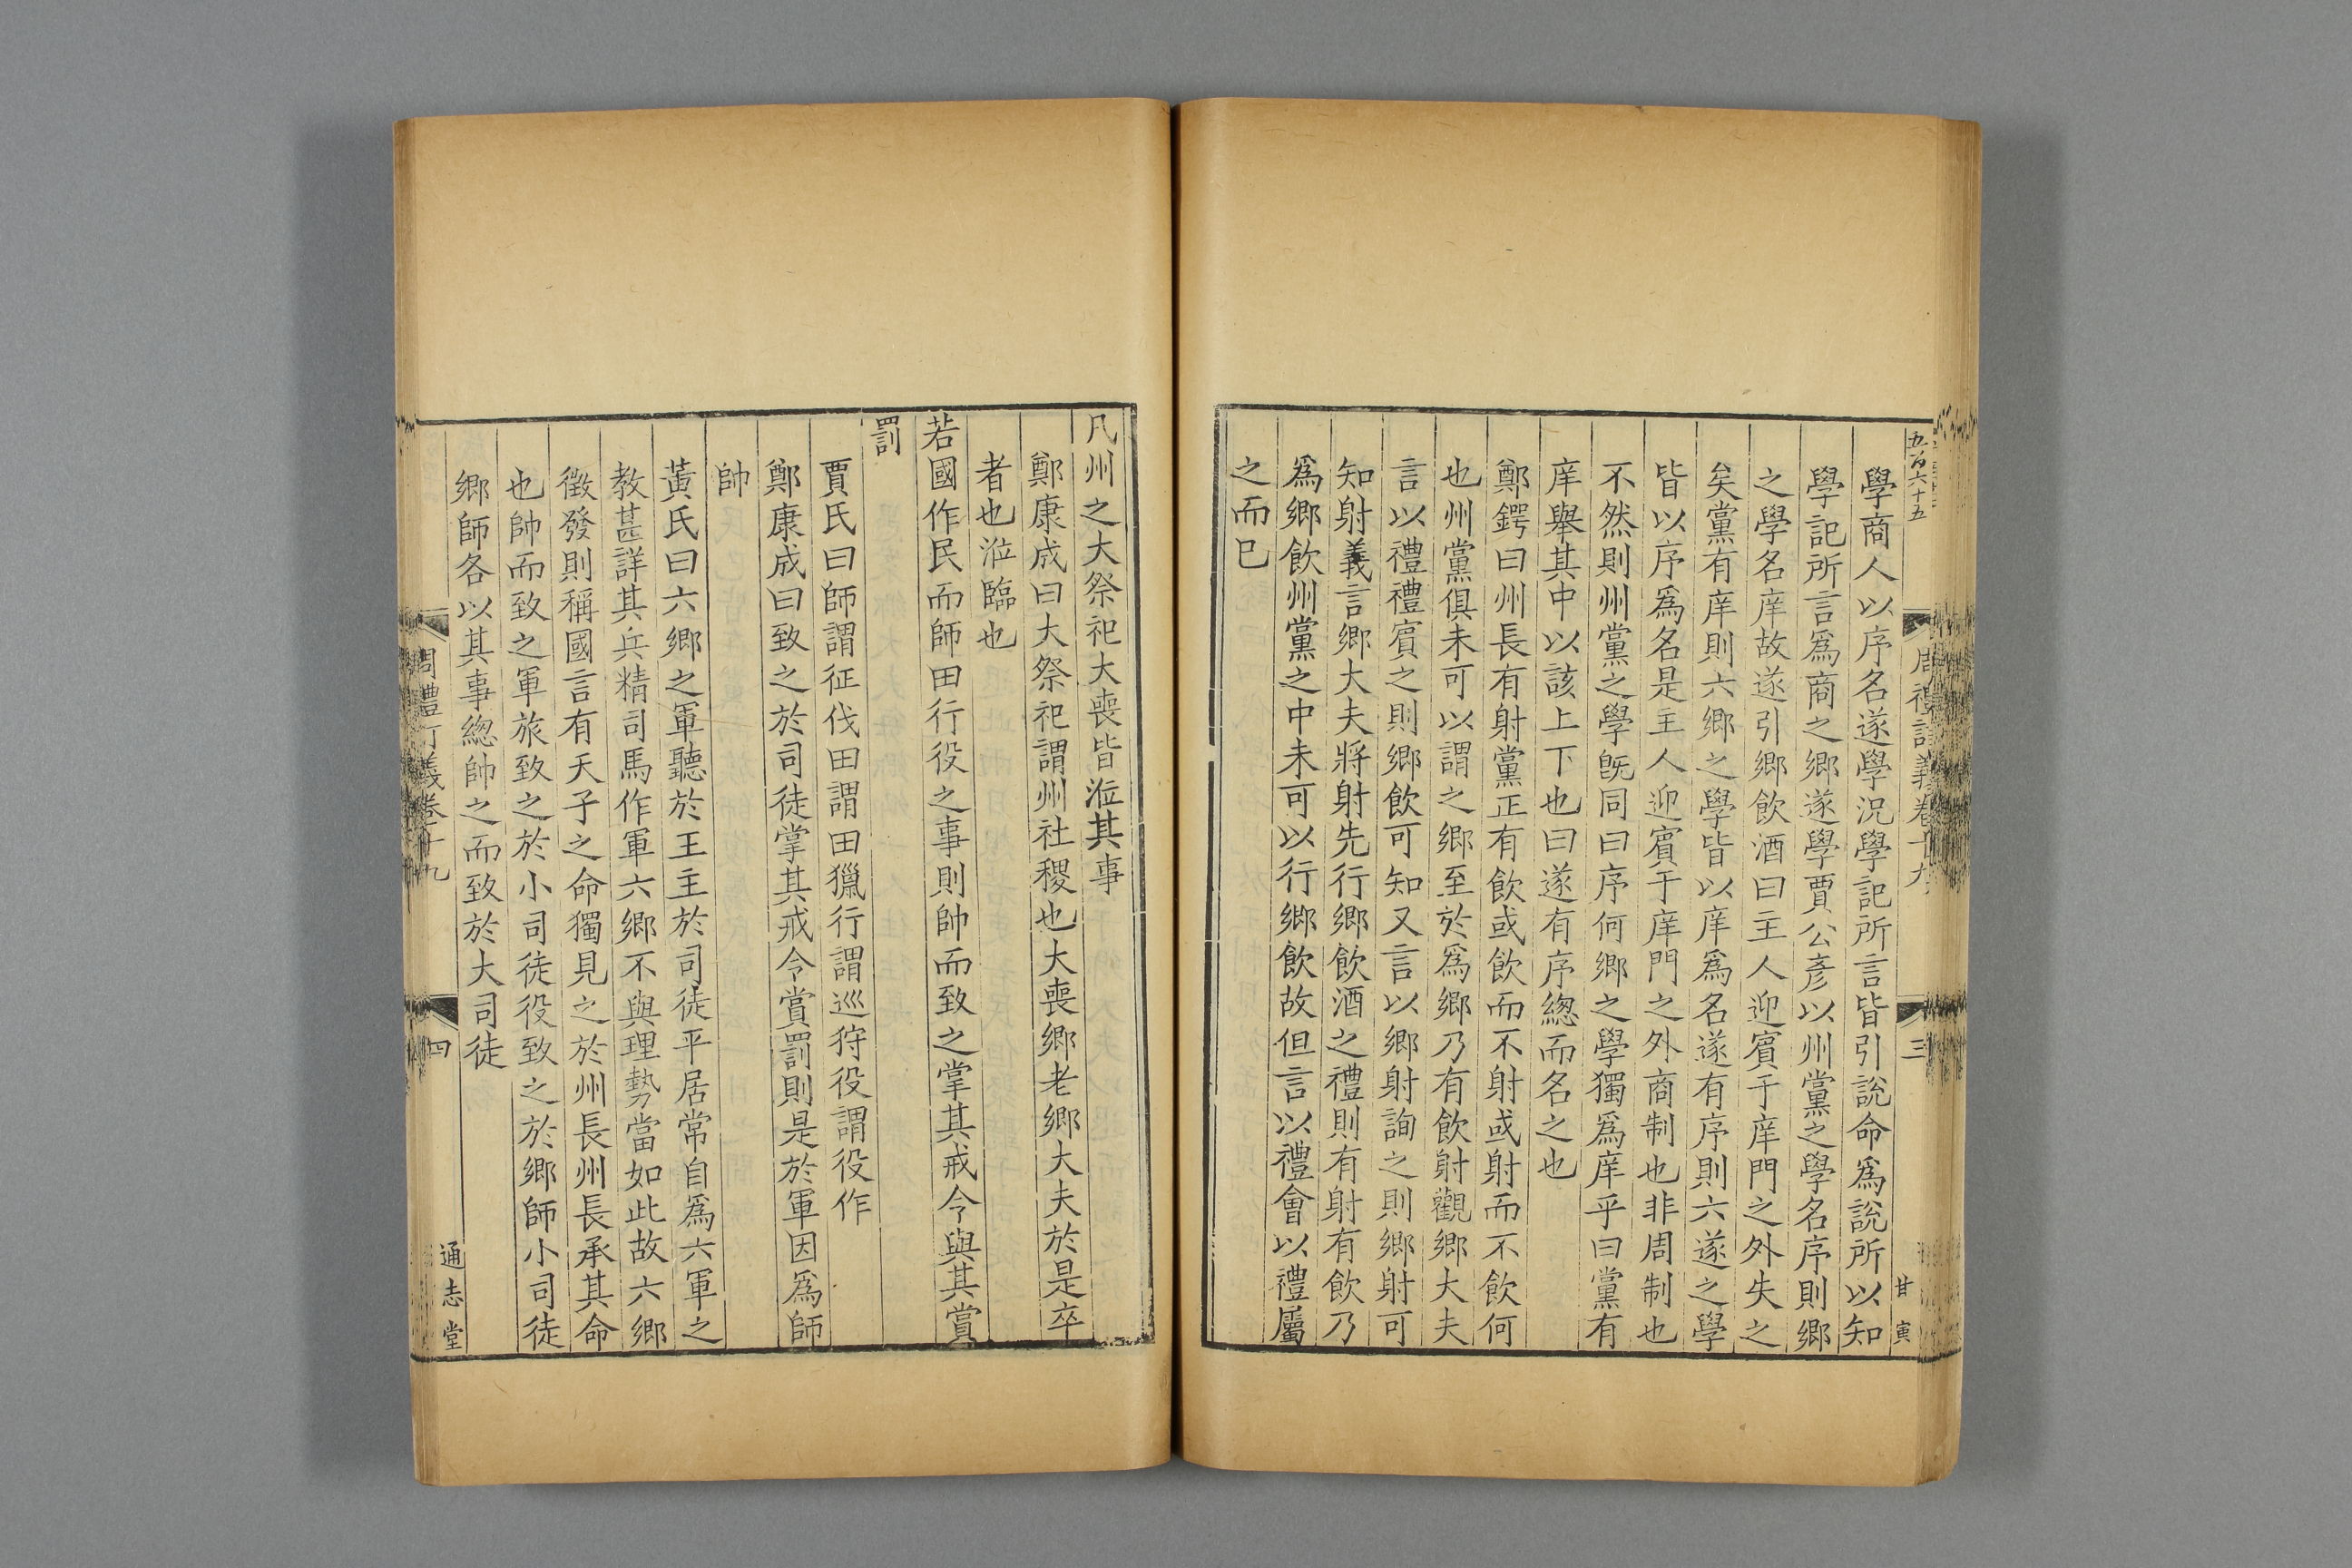 五百六十五
周禮訂義卷十九
三
甘寅
學商人以序名遂學況學記所言皆引說命爲說所以知
學記所言爲商之鄉遂學賈公彥以州黨之學名序則鄉
之學名庠故遂引鄉飲酒曰主人迎賓于庠門之外失之
矣黨有庠則六鄉之學皆以庠爲名遂有序則六遂之學
皆以序爲名是主人迎賓于庠門之外商制也非周制也
不然則州黨之學旣同曰序何鄉之學獨爲庠乎曰黨有
庠舉其中以該上下也曰遂有序總而名之也
鄭鍔曰州長有射黨正有飲或飲而不射或射而不飲何
也州黨俱未可以謂之鄉至於爲鄉乃有飲射觀鄉大夫
言以禮禮賓之則鄉飲可知又言以鄉射詢之則鄉射可
知射義言鄉大夫將射先行鄉飲酒之禮則有射有飲乃
爲鄉飲州黨之中未可以行鄉飲故但言以禮會以禮屬
之而已
凡州之大祭祀大喪皆涖其事
鄭康成曰大祭祀謂州社稷也大喪鄉老鄉大夫於是卒
者也涖臨也
若國作民而師田行役之事則帥而致之掌其戒令與其賞
罰
賈氏曰師謂征伐田謂田獵行謂巡狩役謂役作
鄭康成曰致之於司徒掌其戒令賞罰則是於軍因爲師
帥
黃氏曰六鄉之軍聽於王主於司徒平居常自爲六軍之
教甚詳其兵精司馬作軍六鄉不與理勢當如此故六鄉
徵發則稱國言有天子之命獨見之於州長州長承其命
也帥而致之軍旅致之於小司徒役致之於鄉師小司徒
鄉師各以其事總帥之而致於大司徒
周禮訂義卷十九
四
通志堂